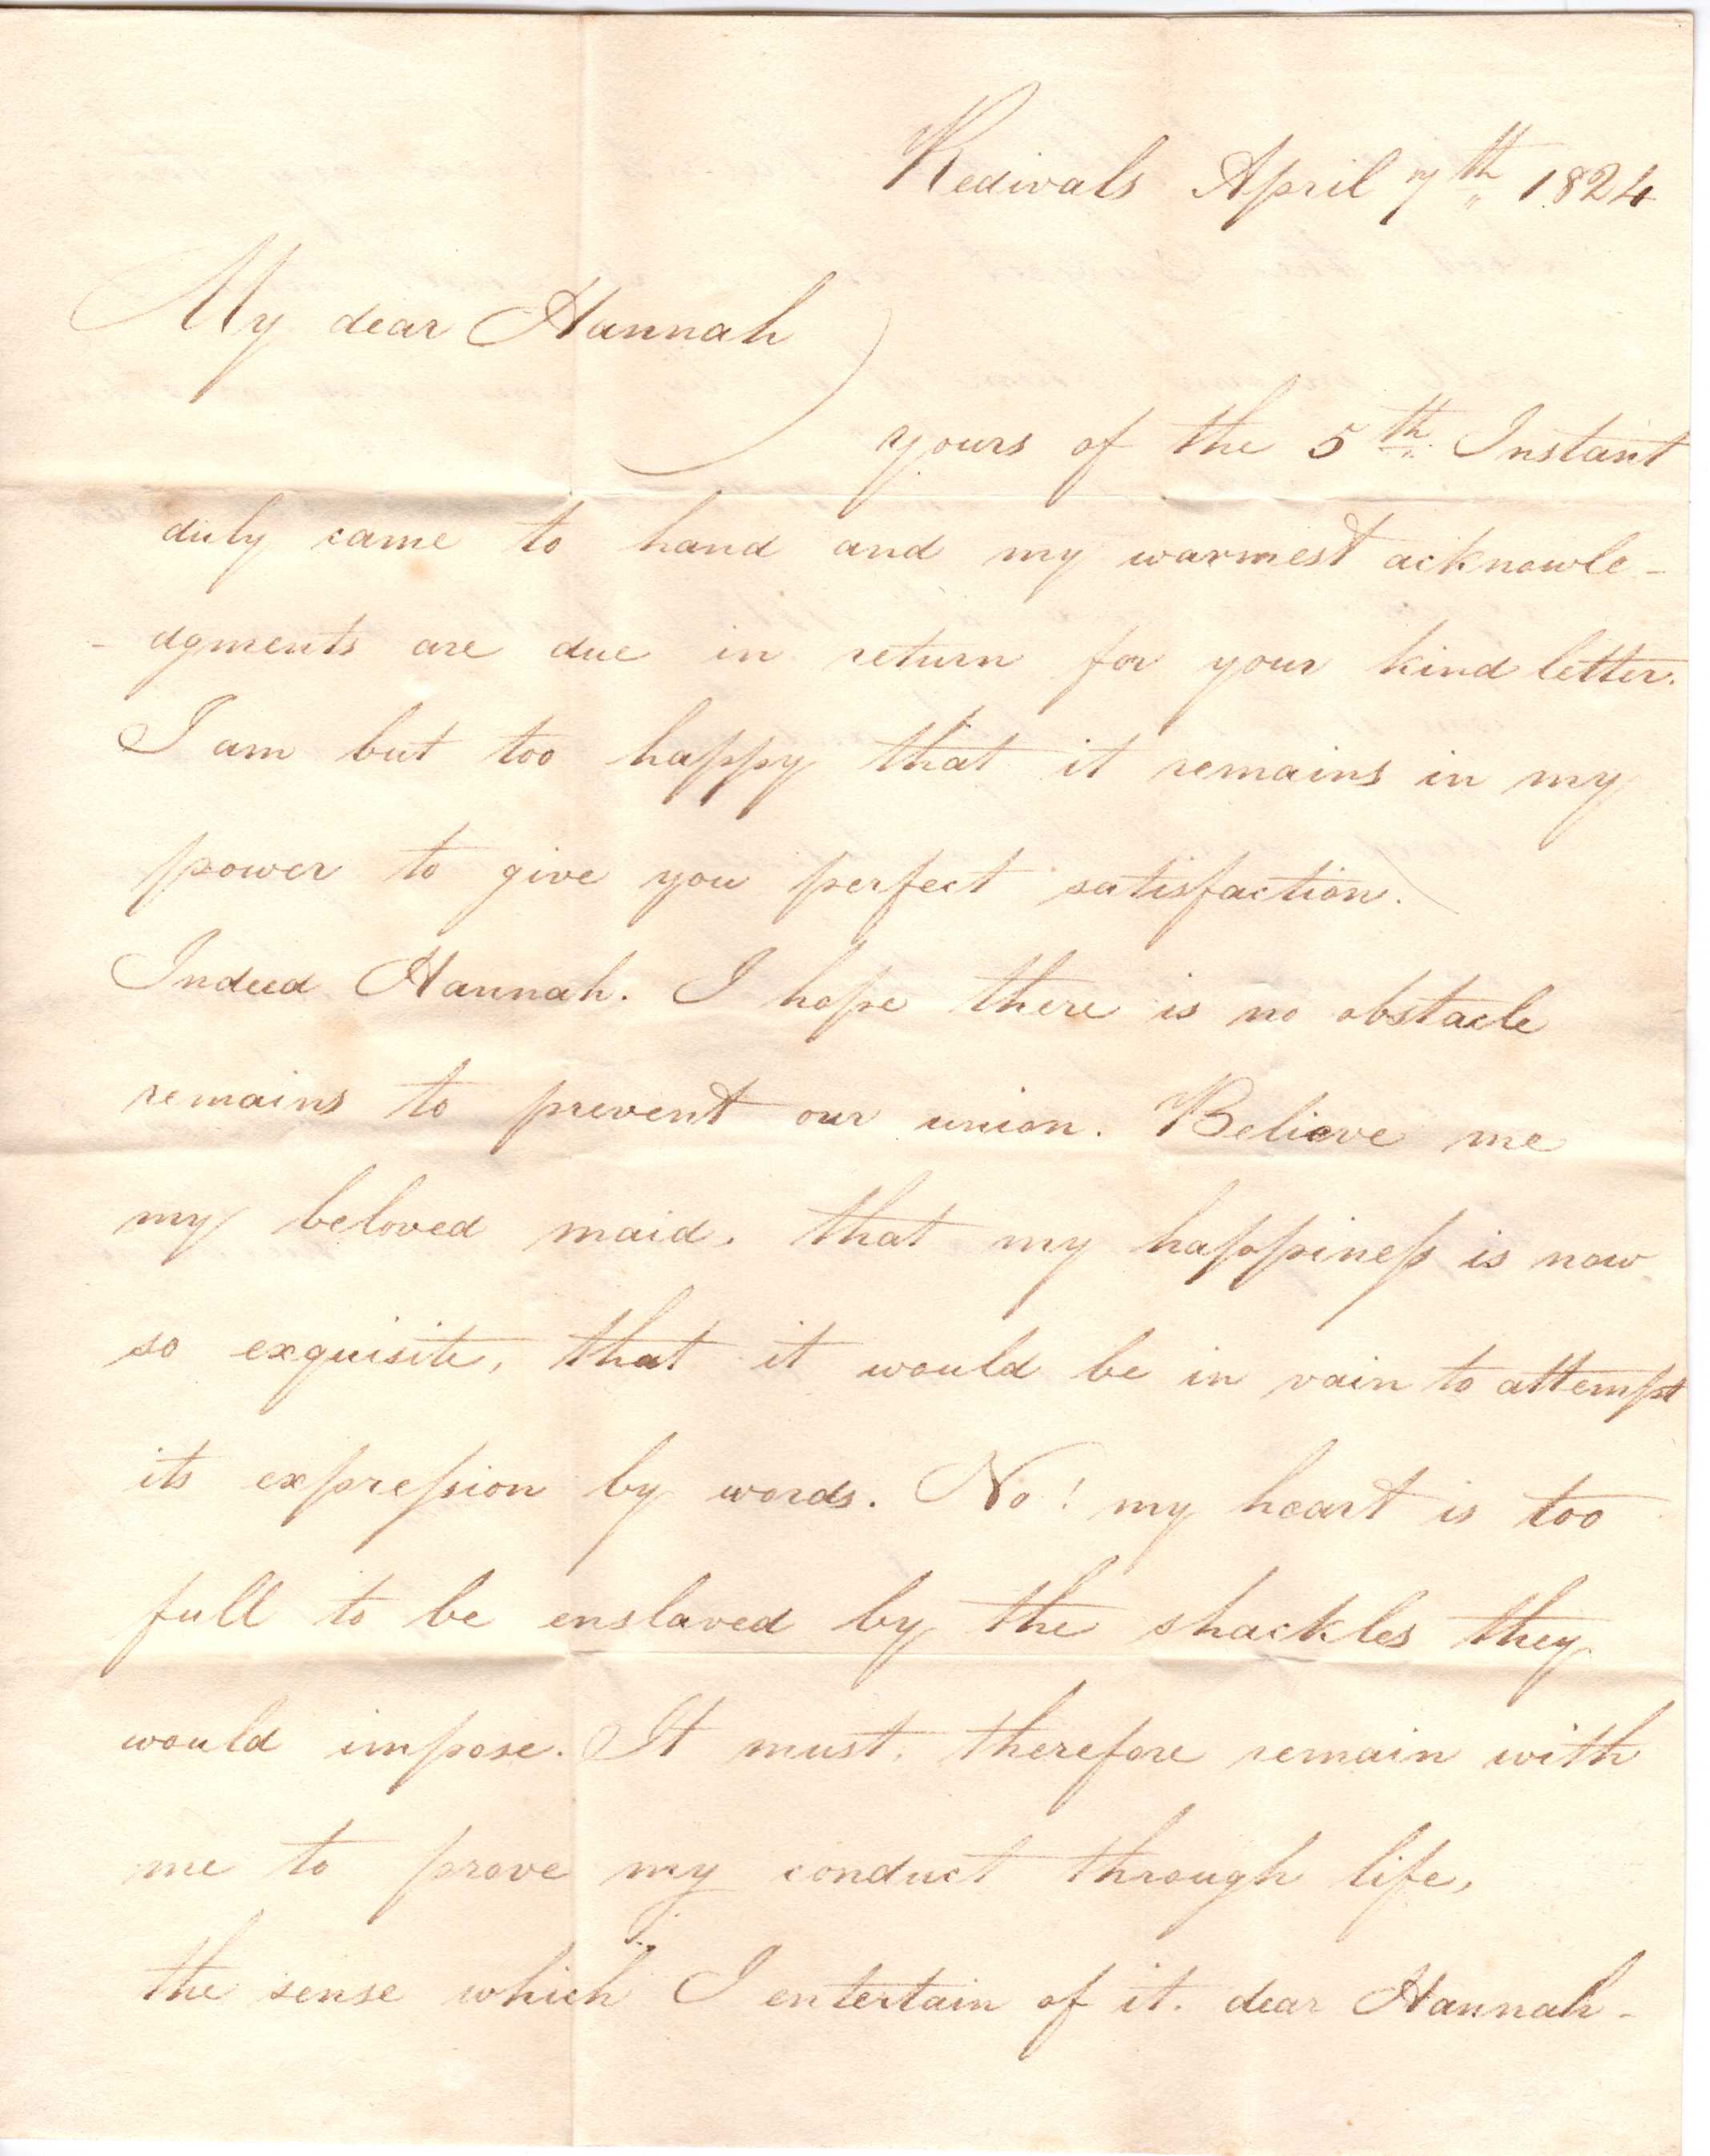 Redivals April 7th 1824
My dear Hannah
yours of the 5th. Instant
duly came to hand and my warmest acknowle-
- dgments are due in return for your kind letter.
I am but too happy that it remains in my
power to give you perfect satisfaction.
Indeed Hannah. I hope there is no obstacle
remains to prevent our union. Believe me
my beloved maid. that my happineſs is now
so exquisite, that it would be in vain to attempt
its expreſsion by words. No! my heart is too
full to be enslaved by the shackles they
would impose. It must, therefore remain with
me to prove my conduct through life,
the sense which I entertain of it. dear Hannah-